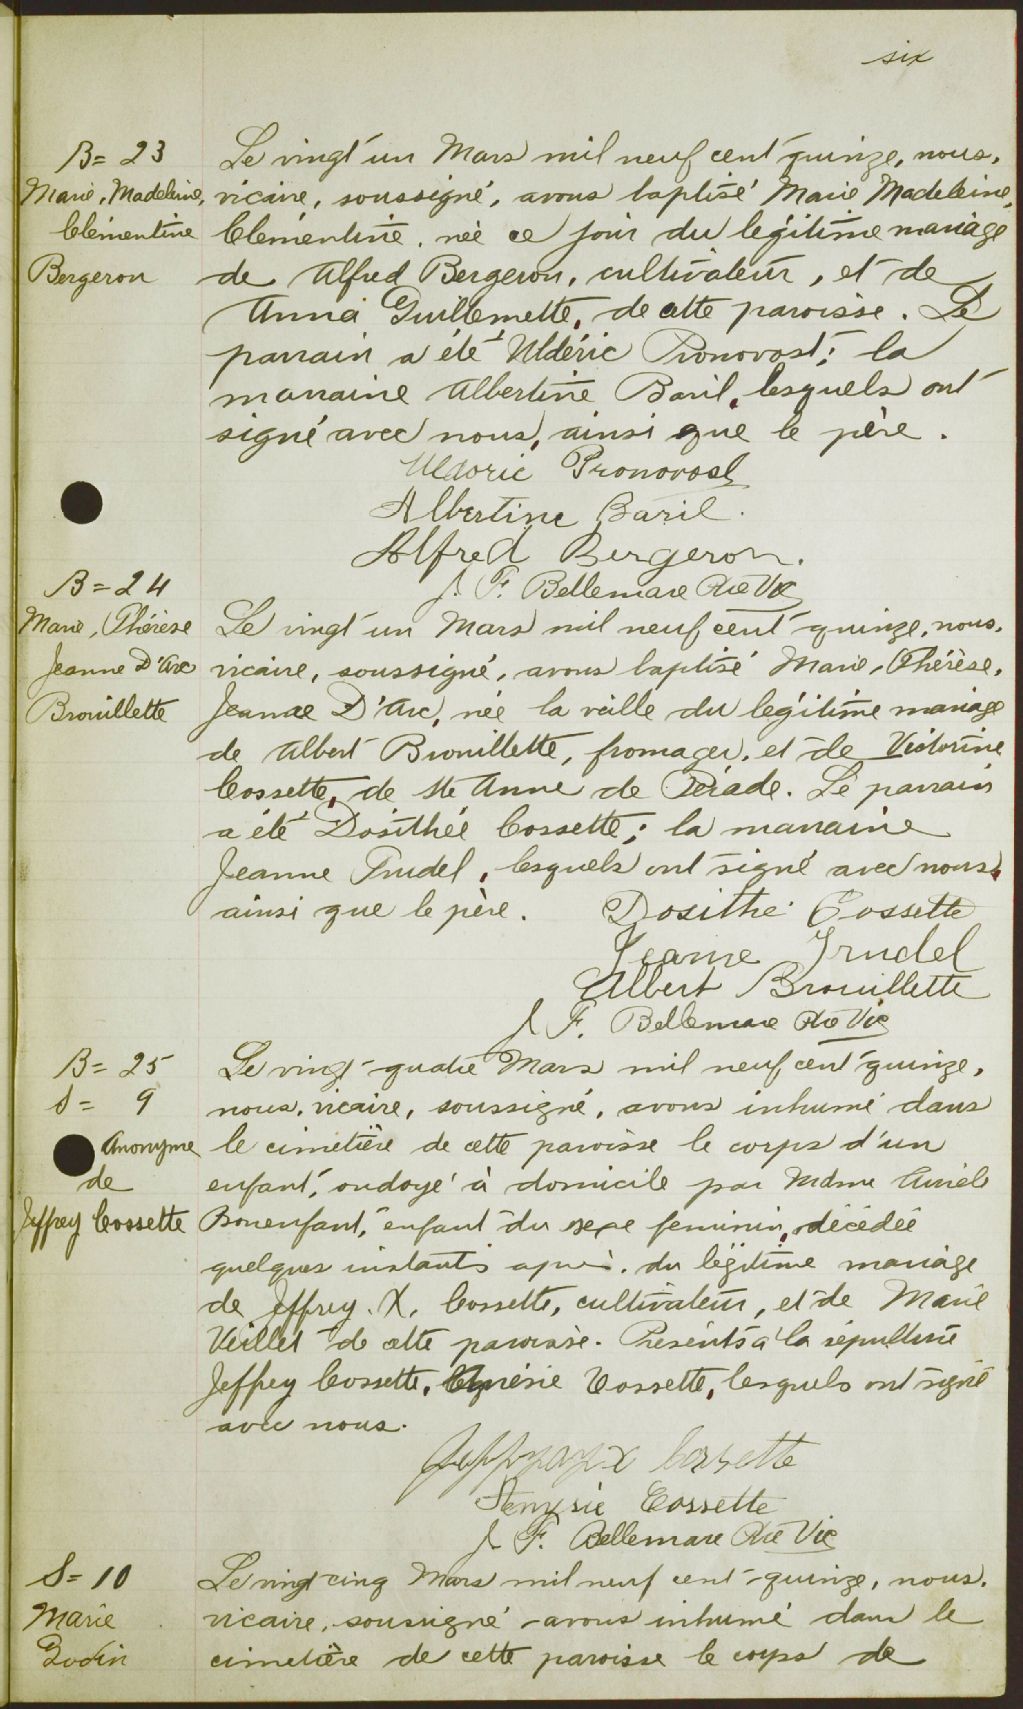 six
B = 23
Marie, Madeleine,
Clémentine
Bergeron
Le vingt un Mars mil neuf cent quinze, nous,
vicaire, soussigné, avons baptisé Marie Madeleine,
Clémentine, née ce jour du légitime mariage
de Alfred Bergeron, cultivateur, et de
Anna Guillemette, de cette paroisse. Le
parrain a été Uldéric Pronovost; la
marraine Albertine Baril, lesquels ont
signé avec nous, ainsi que le père.
Uldoric Pronovost
Albertine Baril.
Alfred Bergeron.
J. F. Bellemare Ptre Vic
B = 24
Marie, Thérèse
Jeanne D'Arc
Brouillette
Le vingt un Mars mil neuf cent quinze, nous,
vicaire, soussigné, avons baptisé Marie, Thérèse,
Jeanne D'Arc, née la veille du légitime mariage
de Albert Brouillette, fromager, et de Victorine
Cossette, de Ste Anne de Pérade. Le parrain
a été Dosithée Cossette; la marraine
Jeanne Trudel, lesquels ont signé avec nous,
ainsi que le père.
Dosithé Cossette
Jeanne Trudel
Albert Brouillette
J. F. Bellemare Ptre Vic
B = 25
S = 9
Anonyme
de
Jeffrey Cossette
Le vingt-quatre Mars mil neuf cent quinze,
nous, vicaire, soussigné, avons inhumé dans
le cimetière de cette paroisse le corps d'un
enfant, ondoyé à domicile par Mdme
Bonenfant, enfant du sexe feminin, décédée
quelques instants après, du légitime mariage
de Jeffrey. X. Cossette, cultivateur, et de Marie
Veillet de cette paroisse. Présents à la sépulture
Jeffrey Cossette, Cossette, lesquels ont signé
avec nous.
Cossette
Cossette
J. F. Bellemare Ptre Vic
S = 10
Marie
Godin
Le vingt cinq Mars mil neuf cent-quinze, nous,
vicaire, soussigné avons inhumé dans le
cimetière de cette paroisse le corps de